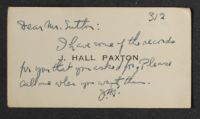 312
Dear Mr. Sutton:
I have some of the records
J. HALL PAXTON
for you that you asked for. Please
call me when you want them.
JHP